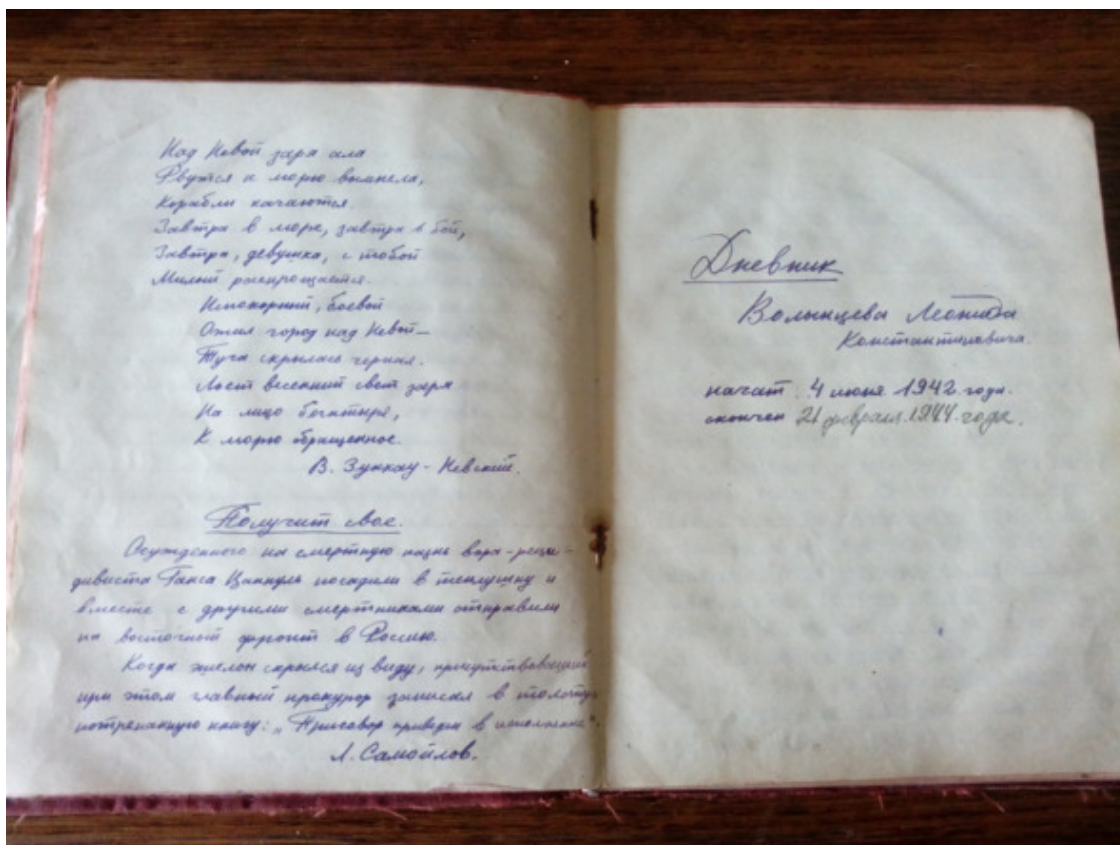 Над Невой заря ала
Рвутся к морю вымпела,
Корабли качаются.
Завтра в море, завтра в бой,
Завтра, девушка, с тобой
Милый распрощается.
Непокорный, боевой
Ожил город над Невой—
Туча скрылась черная.
Льет весенний свет заря
На лицо богатыря,
К морю обращенное.
В. Зуккау-Невский.
Получит свое.
Осужденного на смертную казнь вора-реци-
дивиста Ганса посадили в теплушку и
вместе с другими смертниками отправили
на восточный фронт в Россию.
Когда эшелон скрылся из виду, присутствовавший
при этом главный прокурор записал в толстую
потрепанную книгу: „Приговор приведен в исполнение“.
Л. Самойлов.
Дневник
Волынцева Леонида
Константиновича.
начат 4 июня 1942 года.
окончен 21 февраля 1944 года.